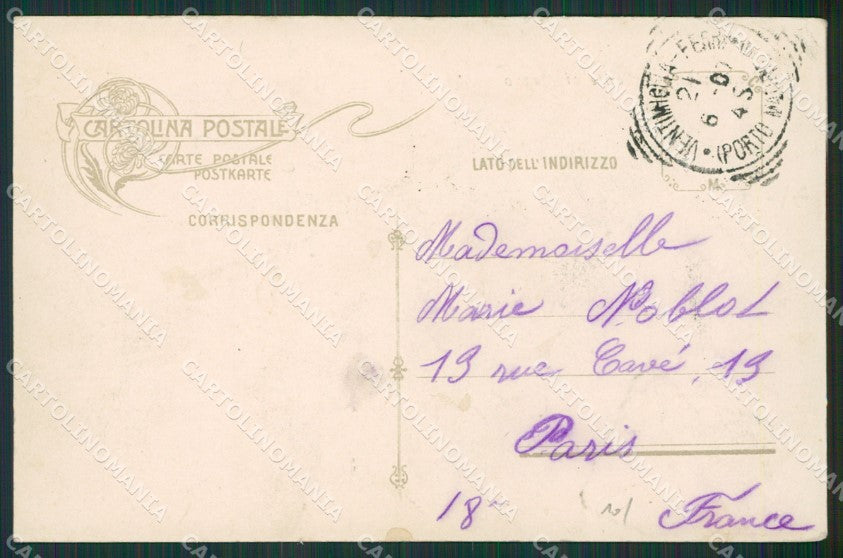 CARTOLINA POSTALE
CARTE POSTALE
POSTKARTE
CORRISPONDENZA
LATO DELL'INDIRIZZO
VENTIMIGLIA
(PORTO
6 21
45
Mademoiselle
Marie Noblot
13 rue Cavé, 13
Paris
18
France
CARTOLINOMANIA